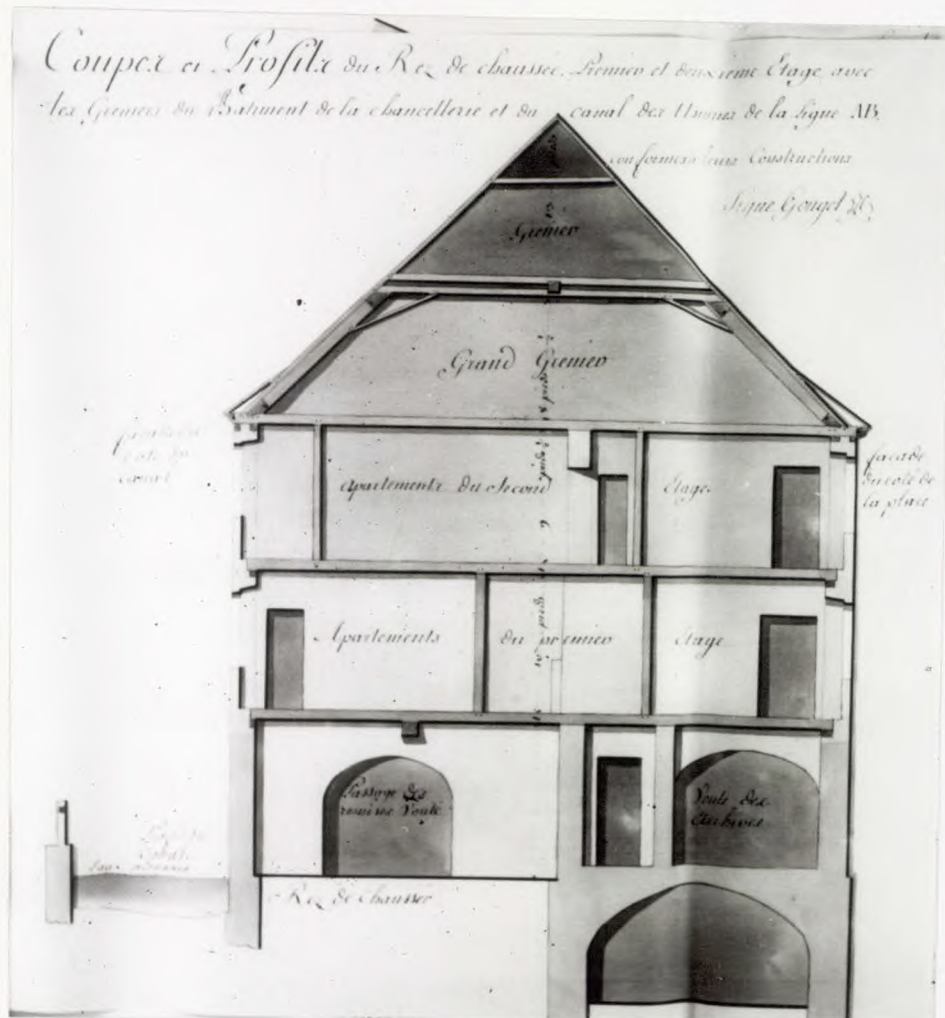 Coupes et Profils du Rez de chaussée, Premier et deuxieme Étage avec
les Greniers du Bâtiment de la chancellerie et du canal des Usines de la ligne AB.
conformes leurs Constructions
Signé Gouget
pieds
Grenier
Grand Grenier
18 pieds
façade du
coté du
canal
façade
du coté de
la place
Apartements du Second Etage
pieds
9
Apartements du premier Etage
10 pieds
Passage des
Voute
Voute des
Archives
Rez de Chaussée